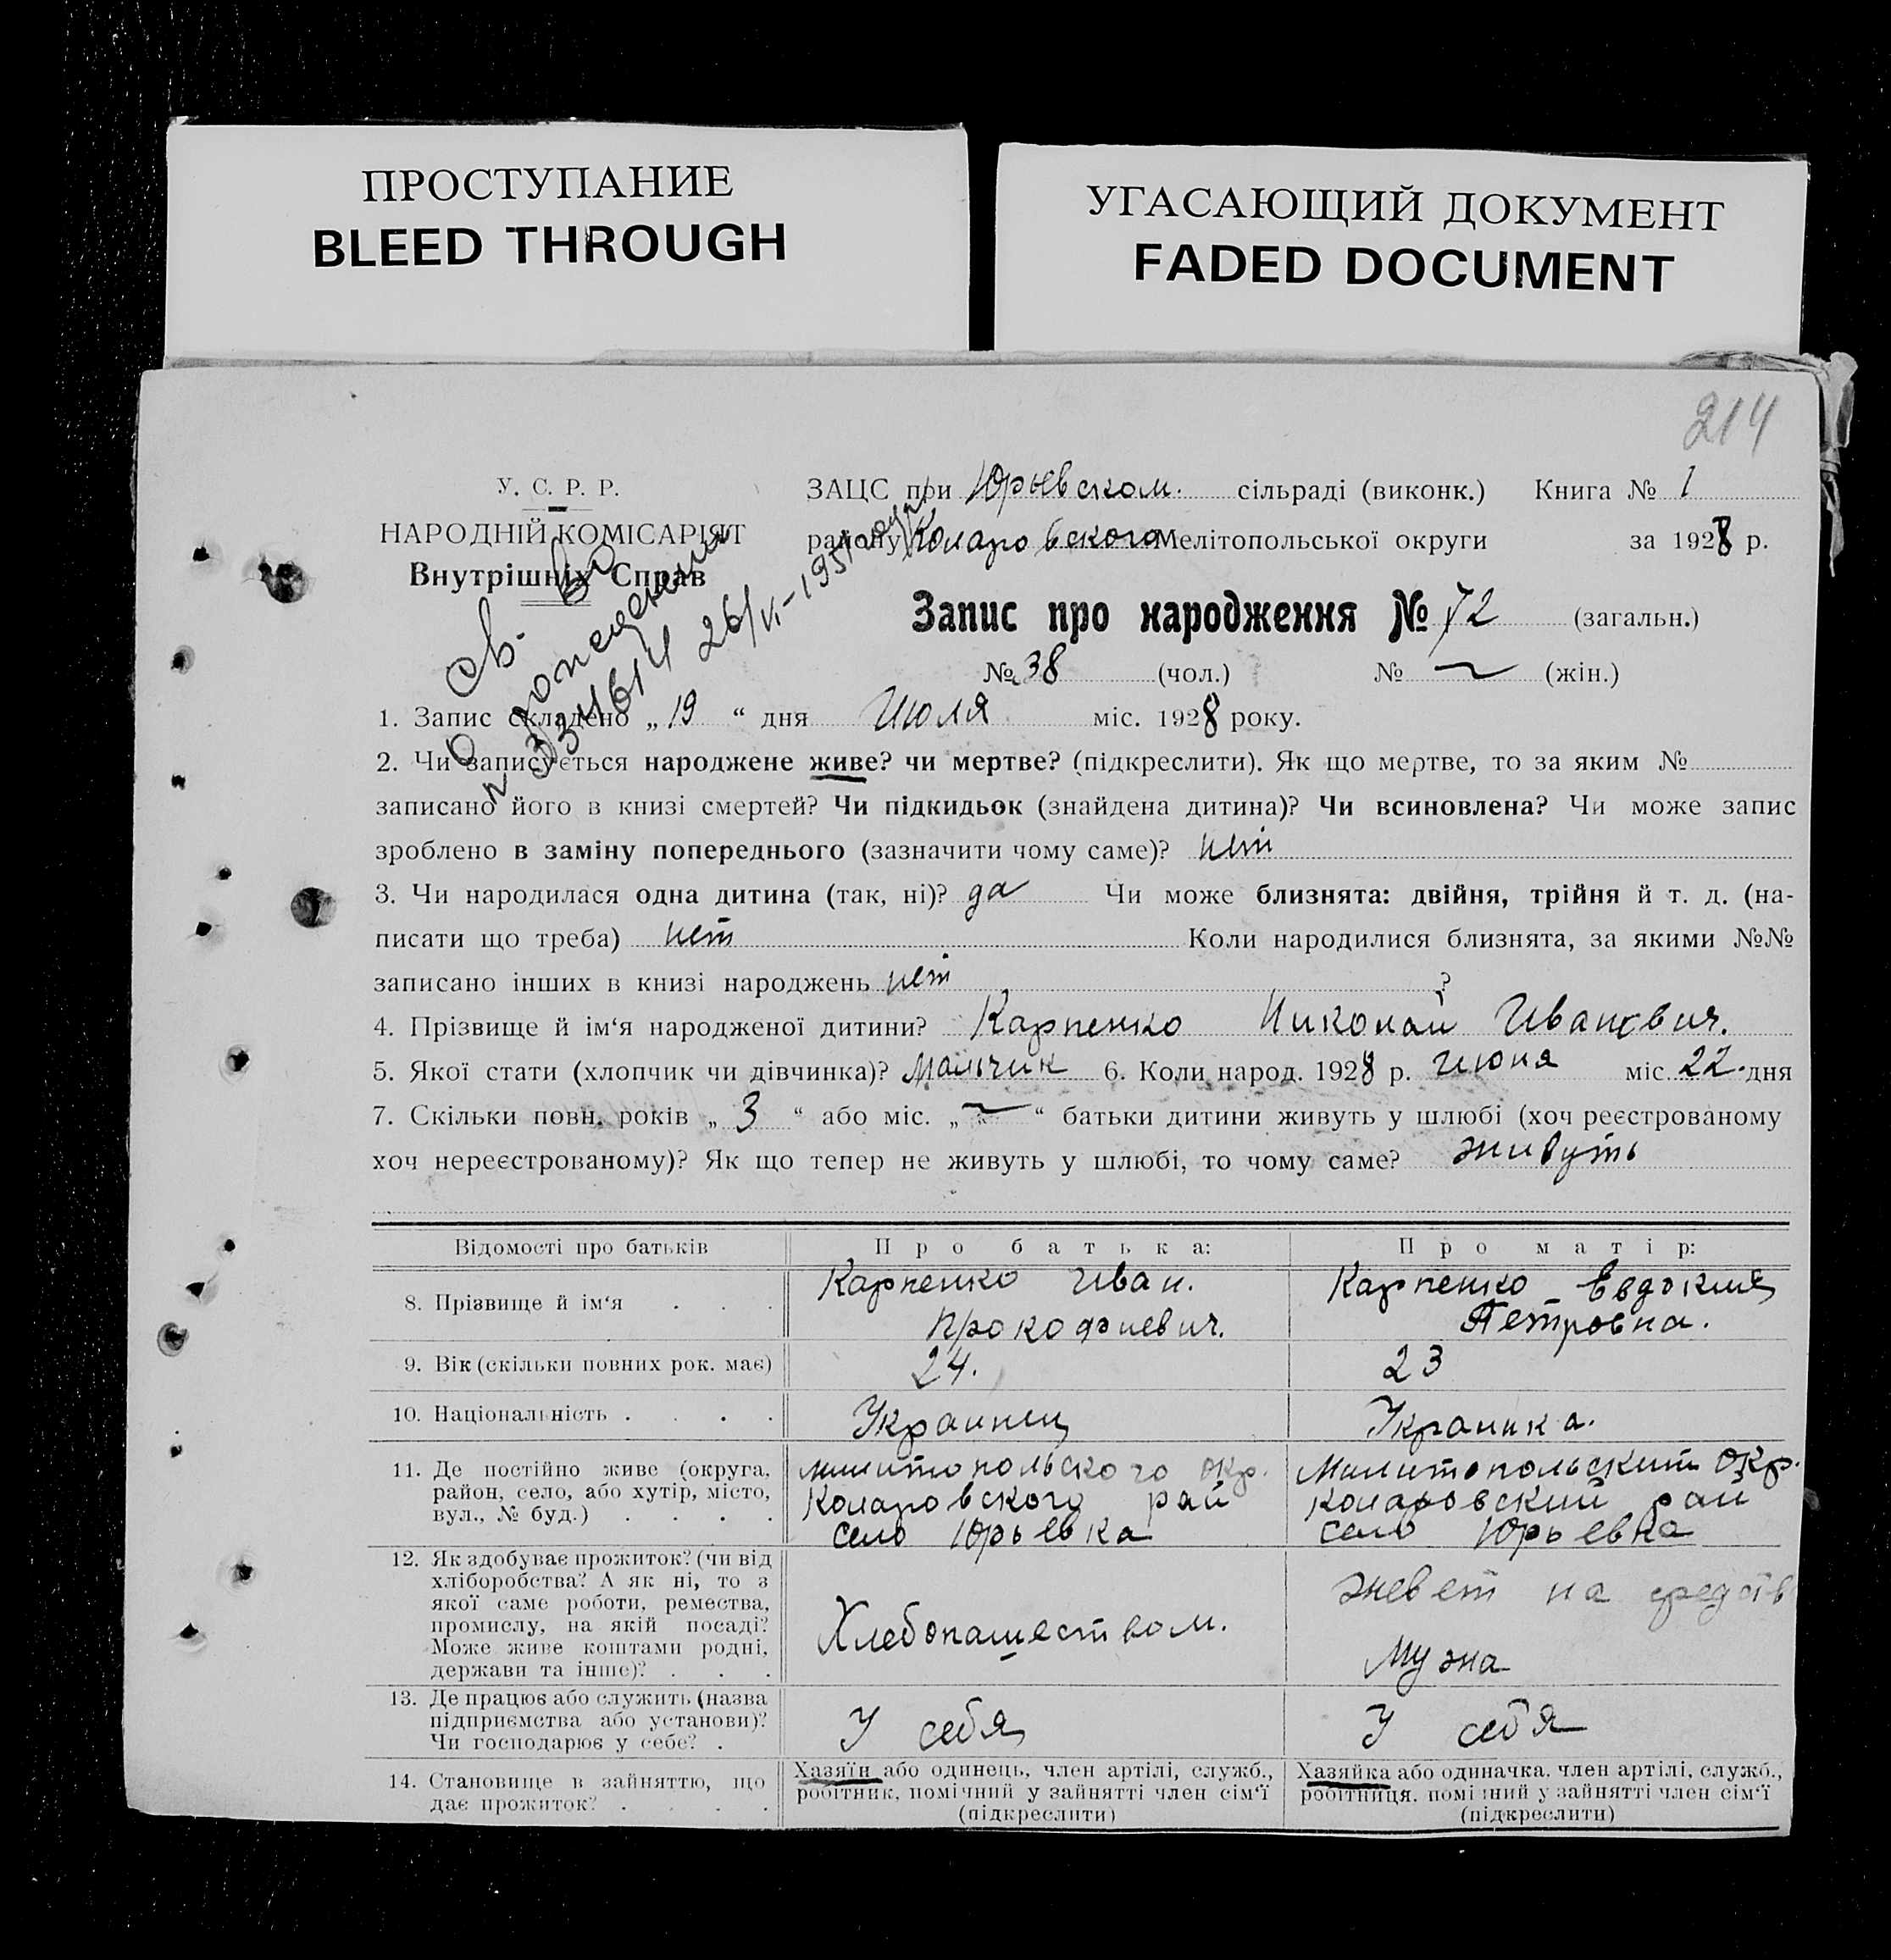 ПРОСТУПАНИЕ
BLEED THROUGH
УГАСАЮЩИЙ ДОКУМЕНТ
FADED DOCUMENT
214
У. С. Р. Р.
НАРОДНІЙ КОМІСАРІЯТ
Внутрішніх Справ
Св. во
о рождении
№ 26/VI-1951 года
ЗАЦС при Юрьевском. сільраді (виконк.) Книга № 1
району Коларовского Мелітопольської округи за 1928 р.
Запис про народження № 72 (загальн.)
№ 38 (чол.) № — (жін.)
1. Запис складено „ 19 “ дня Июля міс. 1928 року.
2. Чи записується народжене живе? чи мертве? (підкреслити). Як що мертве, то за яким №
записано його в книзі смертей? Чи підкидьок (знайдена дитина)? Чи всиновлена? Чи може запис
зроблено в заміну попереднього (зазначити чому саме)? нет
3. Чи народилася одна дитина (так, ні)? да Чи може близнята: двійня, трійня й т. д. (на-
писати що треба) нет Коли народилися близнята, за якими №№
записано інших в книзі народжень нет ?
4. Прізвище й ім‘я народженої дитини? Карпенко Николай Иванович.
5. Якої стати (хлопчик чи дівчинка)? Мальчик 6. Коли народ. 1928 р. Июня міс. 22. дня
7. Скільки повн. років „ 3 “ або міс. „ — “ батьки дитини живуть у шлюбі (хоч реєстрованому
хоч нереєстрованому)? Як що тепер не живуть у шлюбі, то чому саме? живуть
Відомості про батьків Про батька: Про матір:
8. Прізвище й ім‘я . . . Карпенко Иван. Карпенко Евдокия
Прокофиевич. Петровна.
9. Вік (скільки повних рок. має) 24. 23
10. Національність . . . . Украинец Украинка.
11. Де постійно живе (округа, район, село, або хутір, місто, вул., № буд.) . . . .
Милитопольского окр. Милитопольский окр.
Коларовского рай Коларовский рай
село Юрьевка село Юрьевка
12. Як здобуває прожиток? (чи від
хліборобства? А як ні, то з
якої саме роботи, ремества,
промислу, на якій посаді?
Може живе коштами родні,
держави та інше)? . . .
Хлебопашеством.
живет на средств
Мужа
13. Де працює або служить (назва
підприємства або установи)?
Чи господарює у себе? .
У себя У себя
14. Становище в зайняттю, що
дає прожиток? . . . .
Хазяїн або одинець, член артілі, служб.,
робітник, помічний у зайнятті член сім‘ї
(підкреслити)
Хазяйка або одиначка, член артілі, служб.,
робітниця, помічний у зайнятті член сім‘ї
(підкреслити)